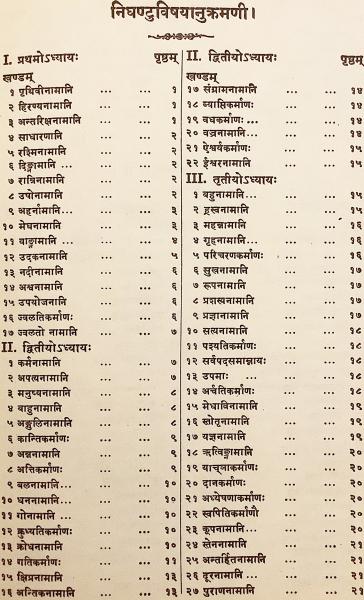 निघण्टुविषयानुक्रमणी।
I. प्रथमोऽध्यायः पृष्ठम्
खण्डम्
१ पृथिवीनामानि ... ... १
२ हिरण्यनामानि ... ... १
३ अन्तरिक्षनामानि ... ... १
४ साधारणानि ... ... २
५ रश्मिनामानि ... ... २
६ दिङ्नामानि ... ... ... २
७ रात्रिनामानि ... ... २
८ उषोनामानि ... ... २
९ अहर्नामानि... ... ... ३
१० मेघनामानि ... ... ३
११ वाङ्नामानि ... ... ... ४
१२ उदकनामानि ... ... ४
१३ नदीनामानि ... ... ५
१४ अश्वनामानि ... ... ५
१५ उपयोजनानि ... ... ६
१६ ज्वलतिकर्माणः ... ... ६
१७ ज्वलतो नामानि ... ... ७
II. द्वितीयोऽध्यायः
१ कर्मनामानि ... ... ७
२ अपत्यनामानि ... ... ७
३ मनुष्यनामानि ... ... ८
४ बाहुनामानि ... ... ८
५ अङ्गुलिनामानि ... ... ८
६ कान्तिकर्माणः ... ... ९
७ अन्ननामानि ... ... ९
८ अत्तिकर्माणः ... ... ९
९ बलनामानि ... ... १०
१० धननामानि ... ... १०
११ गोनामानि ... ... ... १०
१२ क्रुध्यतिकर्माणः ... ... १०
१३ क्रोधनामानि ... ... १०
१४ गतिकर्माणः ... ... ११
१५ क्षिप्रनामानि ... ... १३
१६ अन्तिकनामानि ... ... १३
II. द्वितीयोऽध्यायः पृष्ठम्
खण्डम्
१७ संग्रामनामानि ... ... १४
१८ व्याप्तिकर्माणः ... ... १४
१९ वधकर्माणः ... ... ... १४
२० वज्रनामानि... ... ... १५
२१ ऐश्वर्यकर्माणः ... ... १५
२२ ईश्वरनामानि ... ... १५
III. तृतीयोऽध्यायः
१ बहुनामानि... ... ... १५
२ ह्रस्वनामानि ... ... १५
३ महन्नामानि ... ... १६
४ गृहनामानि ... ... ... १६
५ परिचरणकर्माणः ... ... १६
६ सुखनामानि ... ... १६
७ रूपनामानि ... ... १७
८ प्रशस्यनामानि ... ... १७
९ प्रज्ञानामानि ... ... १७
१० सत्यनामानि ... ... १८
११ पश्यतिकर्माणः ... ... १८
१२ सर्वपदसमाम्नायः ... ... १८
१३ उपमाः ... ... ... १८
१४ अर्चतिकर्माणः ... ... १८
१५ मेधाविनामानि ... ... १९
१६ स्तोतृनामानि ... ... १९
१७ यज्ञनामानि ... ... १९
१८ ऋत्विङ्नामानि ... ... २०
१९ याच्ञाकर्माणः ... ... २०
२० दानकर्माणः ... ... २०
२१ अध्येषणाकर्माणः ... ... २०
२२ स्वपितिकर्माणौ ... ... २०
२३ कूपनामानि... ... ... २०
२४ स्तेननामानि ... ... २१
२५ अन्तर्हितनामानि ... ... २१
२६ दूरनामानि ... ... ... २१
२७ पुराणनामानि ... ... २१